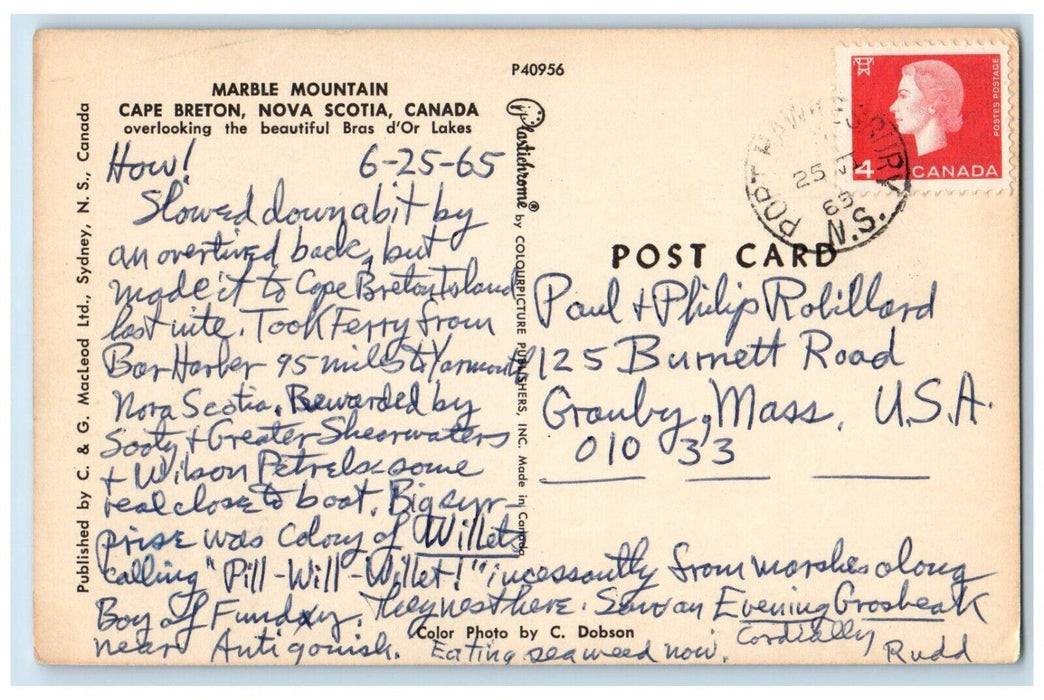 P40956
MARBLE MOUNTAIN
CAPE BRETON, NOVA SCOTIA, CANADA
overlooking the beautiful Bras d'Or Lakes
How! 6-25-65
Slowed down a bit by
an overtired back, but
made it to Cape Breton Island
last nite. Took Ferry from
Bar Harber 95 miles to Yarmouth
Nova Scotia. Rewarded by
Sooty + Greater Shearwaters
+ Wilson Petrels - some
real close to boat. Big sur-
prise was Colony of Willets
calling "Pill-Will-Willet!" incessantly from marshes along
Bay of Fundy. They nest here. Saw an Evening Grosbeak
near Antigonish. Eating seaweed now.
Cordially
Rudd
Color Photo by C. Dobson
Published by C. & G. MacLeod Ltd., Sydney, N. S., Canada
Plastichrome® by COLOURPICTURE PUBLISHERS, INC. Made in Canada
POST CARD
Paul + Philip Robillard
125 Burnett Road
Granby, Mass. U.S.A.
010 33
POSTES POSTAGE
4 CANADA
PORT HAWKESBURY
25 VI
65
N.S.